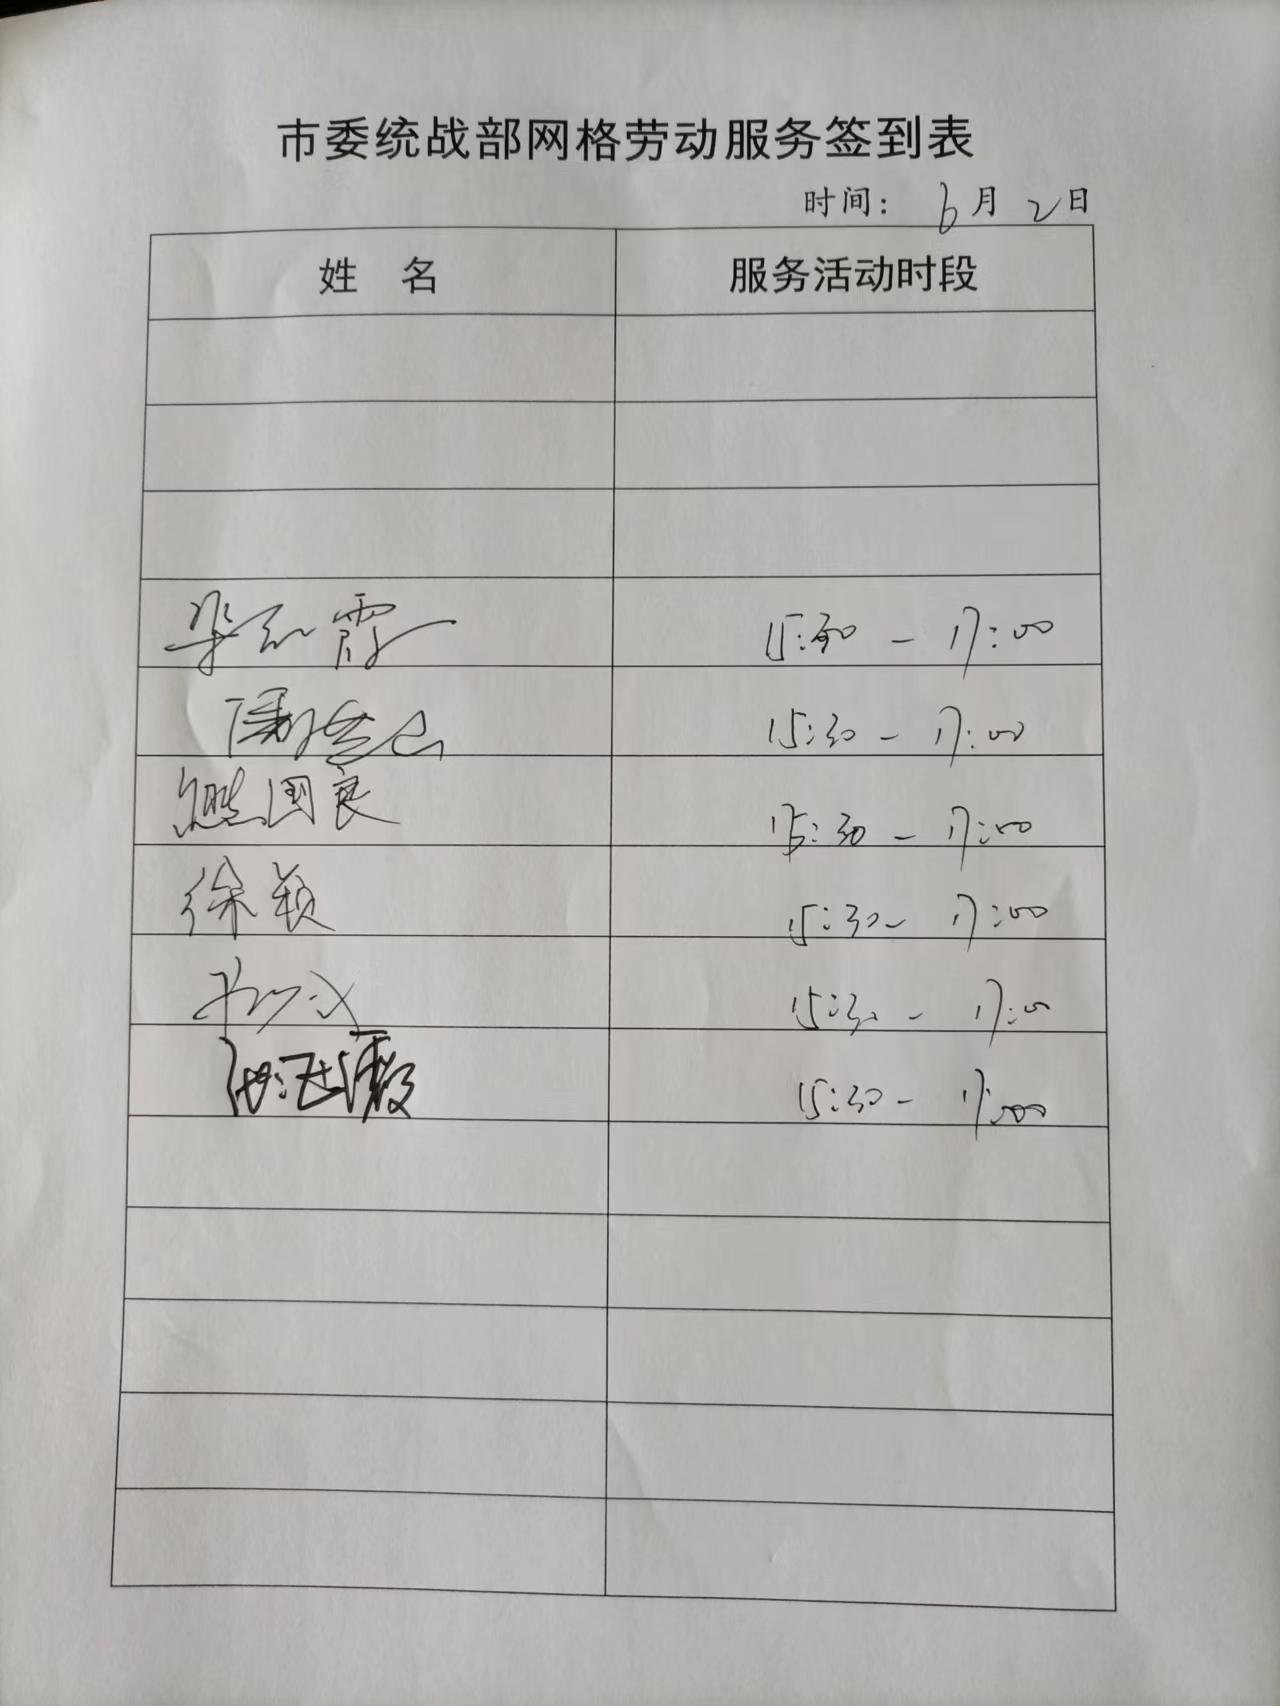 市委统战部网格劳动服务签到表
时间: 6月2日
姓 名 服务活动时段
15:30 - 17:00
15:30 - 17:00
熊国良 15:30 - 17:00
徐颖 15:30 - 17:00
15:30 - 17:00
15:30 - 17:00